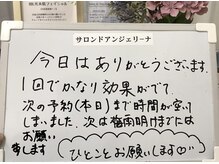 サロンドアンジェリーナ
今日はありがとうございます。
1回でかなり効果がでて、
次の予約(本日)まで時間が空いて
しまいました。次は梅雨明けまでには
お願い
申します
ひとことお願いします